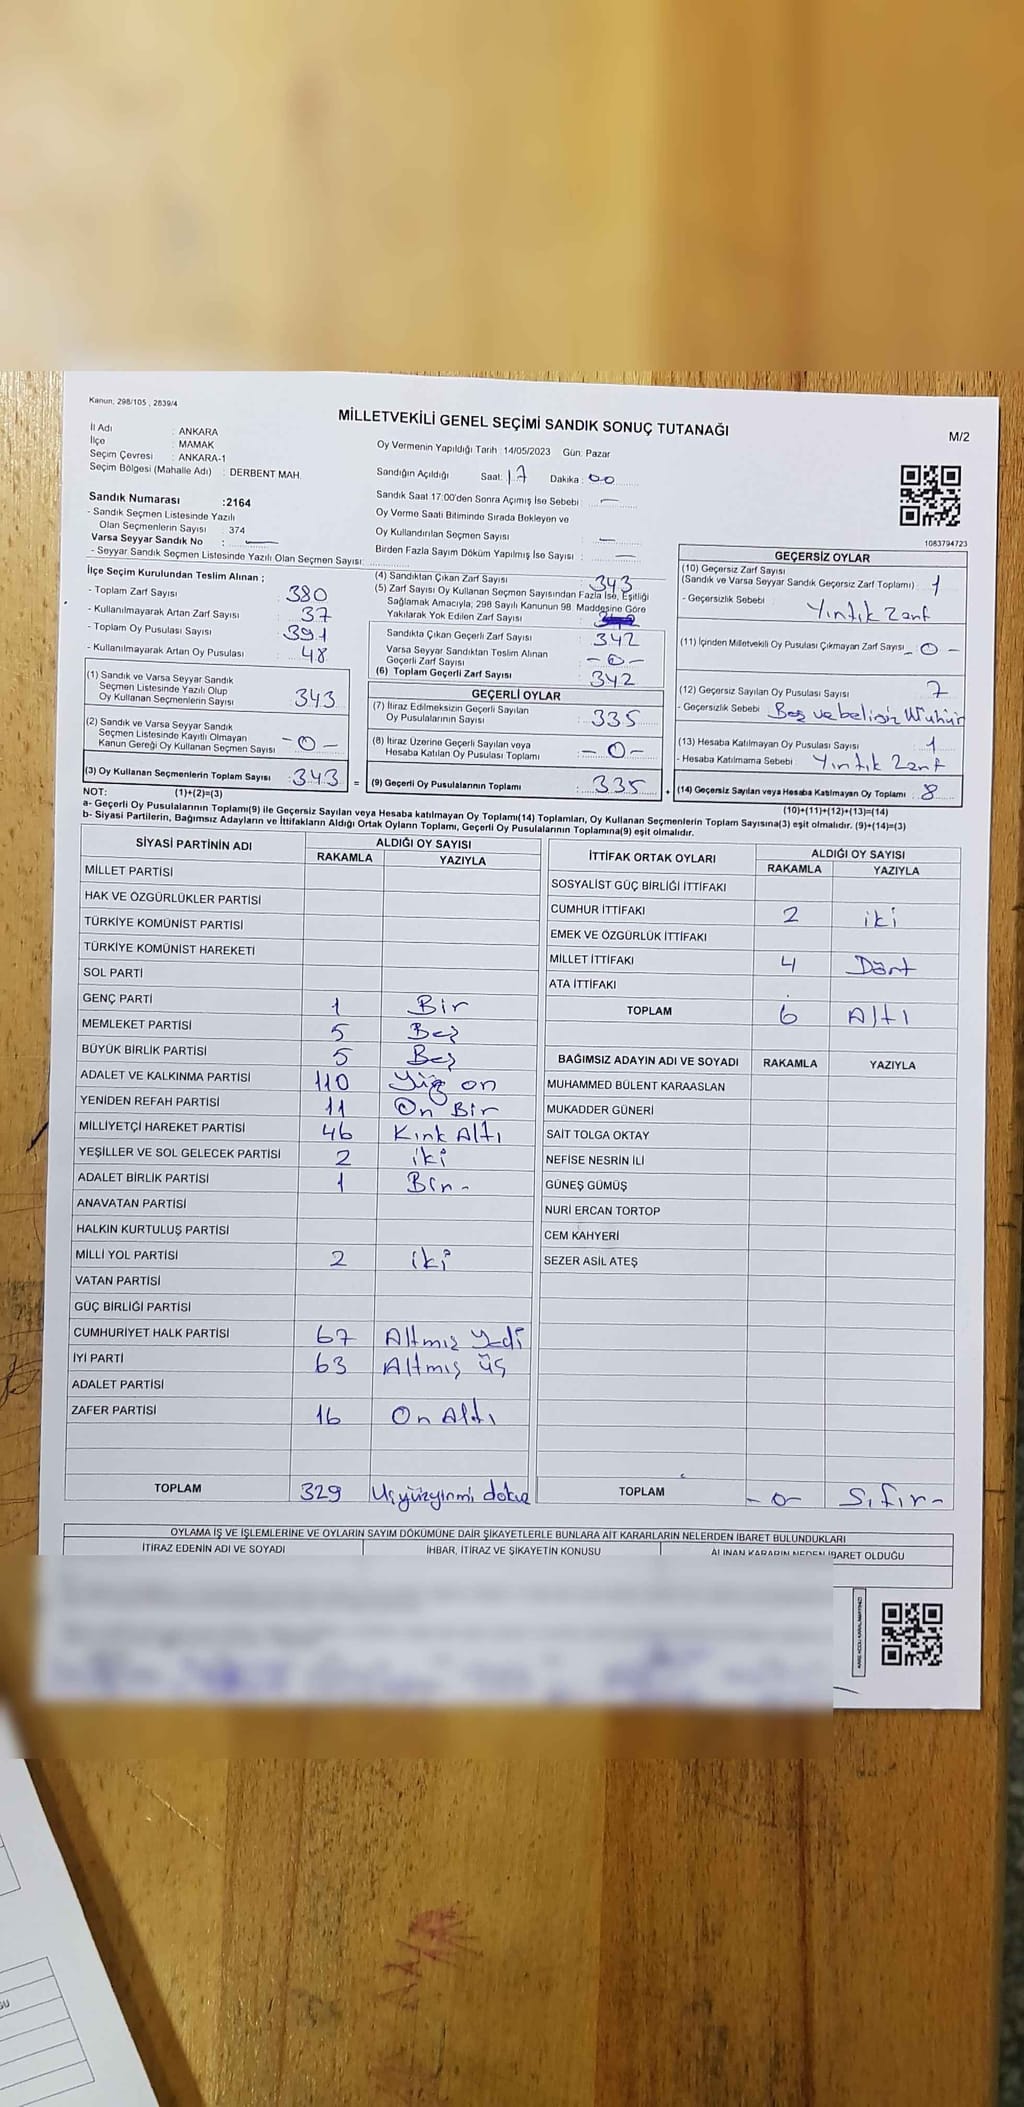 Kanun, 298/105 , 2839/4
MİLLETVEKİLİ GENEL SEÇİMİ SANDIK SONUÇ TUTANAĞI
M/2
İl Adı : ANKARA
İlçe : MAMAK
Seçim Çevresi : ANKARA-1
Seçim Bölgesi (Mahalle Adı) : DERBENT MAH.
Oy Vermenin Yapıldığı Tarih : 14/05/2023 Gün: Pazar
Sandığın Açıldığı Saat: 17 Dakika : 00
Sandık Saat 17:00'den Sonra Açımış İse Sebebi —
Oy Verme Saati Bitiminde Sırada Bekleyen ve
Oy Kullandırılan Seçmen Sayısı : —
Birden Fazla Sayım Döküm Yapılmış İse Sayısı : —
1083794723
Sandık Numarası :2164
- Sandık Seçmen Listesinde Yazılı
Olan Seçmenlerin Sayısı : 374
Varsa Seyyar Sandık No : —
- Seyyar Sandık Seçmen Listesinde Yazılı Olan Seçmen Sayısı:
İlçe Seçim Kurulundan Teslim Alınan ;
- Toplam Zarf Sayısı 380
- Kullanılmayarak Artan Zarf Sayısı 37
- Toplam Oy Pusulası Sayısı 391
- Kullanılmayarak Artan Oy Pusulası 48
(1) Sandık ve Varsa Seyyar Sandık
Seçmen Listesinde Yazılı Olup
Oy Kullanan Seçmenlerin Sayısı 343
(2) Sandık ve Varsa Seyyar Sandık
Seçmen Listesinde Kayıtlı Olmayan
Kanun Gereği Oy Kullanan Seçmen Sayısı -0-
(3) Oy Kullanan Seçmenlerin Toplam Sayısı : 343 =
(4) Sandıktan Çıkan Zarf Sayısı : 343
(5) Zarf Sayısı Oy Kullanan Seçmen Sayısından Fazla İse, Eşitliği
Sağlamak Amacıyla; 298 Sayılı Kanunun 98. Maddesine Göre
Yakılarak Yok Edilen Zarf Sayısı :
Sandıkta Çıkan Geçerli Zarf Sayısı : 342
Varsa Seyyar Sandıktan Teslim Alınan
Geçerli Zarf Sayısı : -0-
(6) Toplam Geçerli Zarf Sayısı : 342
GEÇERLİ OYLAR
(7) İtiraz Edilmeksizin Geçerli Sayılan
Oy Pusulalarının Sayısı : 335
(8) İtiraz Üzerine Geçerli Sayılan veya
Hesaba Katılan Oy Pusulası Toplamı : -0-
(9) Geçerli Oy Pusulalarının Toplamı : 335 +
GEÇERSİZ OYLAR
(10) Geçersiz Zarf Sayısı
(Sandık ve Varsa Seyyar Sandık Geçersiz Zarf Toplamı) : 1
- Geçersizlik Sebebi Yırtık Zarf
(11) İçinden Milletvekili Oy Pusulası Çıkmayan Zarf Sayısı -0-
(12) Geçersiz Sayılan Oy Pusulası Sayısı 7
- Geçersizlik Sebebi Boş ve belirsiz Mühür
(13) Hesaba Katılmayan Oy Pusulası Sayısı 1
- Hesaba Katılmama Sebebi : Yırtık Zarf
(14) Geçersiz Sayılan veya Hesaba Katılmayan Oy Toplamı : 8
NOT: (1)+(2)=(3) (10)+(11)+(12)+(13)=(14)
a- Geçerli Oy Pusulalarının Toplamı(9) ile Geçersiz Sayılan veya Hesaba katılmayan Oy Toplamı(14) Toplamları, Oy Kullanan Seçmenlerin Toplam Sayısına(3) eşit olmalıdır. (9)+(14)=(3)
b- Siyasi Partilerin, Bağımsız Adayların ve İttifakların Aldığı Ortak Oyların Toplamı, Geçerli Oy Pusulalarının Toplamına(9) eşit olmalıdır.
SİYASİ PARTİNİN ADI ALDIĞI OY SAYISI
RAKAMLA YAZIYLA
MİLLET PARTİSİ
HAK VE ÖZGÜRLÜKLER PARTİSİ
TÜRKİYE KOMÜNİST PARTİSİ
TÜRKİYE KOMÜNİST HAREKETİ
SOL PARTİ
GENÇ PARTİ 1 Bir
MEMLEKET PARTİSİ 5 Beş
BÜYÜK BİRLİK PARTİSİ 5 Beş
ADALET VE KALKINMA PARTİSİ 110 Yüz on
YENİDEN REFAH PARTİSİ 11 On Bir
MİLLİYETÇİ HAREKET PARTİSİ 46 Kırk Altı
YEŞİLLER VE SOL GELECEK PARTİSİ 2 iki
ADALET BİRLİK PARTİSİ 1 Bir-
ANAVATAN PARTİSİ
HALKIN KURTULUŞ PARTİSİ
MİLLİ YOL PARTİSİ 2 iki
VATAN PARTİSİ
GÜÇ BİRLİĞİ PARTİSİ
CUMHURİYET HALK PARTİSİ 67 Altmış Yedi
İYİ PARTİ 63 Altmış üç
ADALET PARTİSİ
ZAFER PARTİSİ 16 On Altı
TOPLAM 329 Üçyüzyirmi dokuz
İTTİFAK ORTAK OYLARI ALDIĞI OY SAYISI
RAKAMLA YAZIYLA
SOSYALİST GÜÇ BİRLİĞİ İTTİFAKI
CUMHUR İTTİFAKI 2 iki
EMEK VE ÖZGÜRLÜK İTTİFAKI
MİLLET İTTİFAKI 4 Dört
ATA İTTİFAKI
TOPLAM 6 Altı
BAĞIMSIZ ADAYIN ADI VE SOYADI RAKAMLA YAZIYLA
MUHAMMED BÜLENT KARAASLAN
MUKADDER GÜNERİ
SAİT TOLGA OKTAY
NEFİSE NESRİN İLİ
GÜNEŞ GÜMÜŞ
NURİ ERCAN TORTOP
CEM KAHYERİ
SEZER ASİL ATEŞ
TOPLAM -0- Sıfır-
OYLAMA İŞ VE İŞLEMLERİNE VE OYLARIN SAYIM DÖKÜMÜNE DAİR ŞİKAYETLERLE BUNLARA AİT KARARLARIN NELERDEN İBARET BULUNDUKLARI
İTİRAZ EDENİN ADI VE SOYADI İHBAR, İTİRAZ VE ŞİKAYETİN KONUSU ALINAN KARARIN NEDEN İBARET OLDUĞU